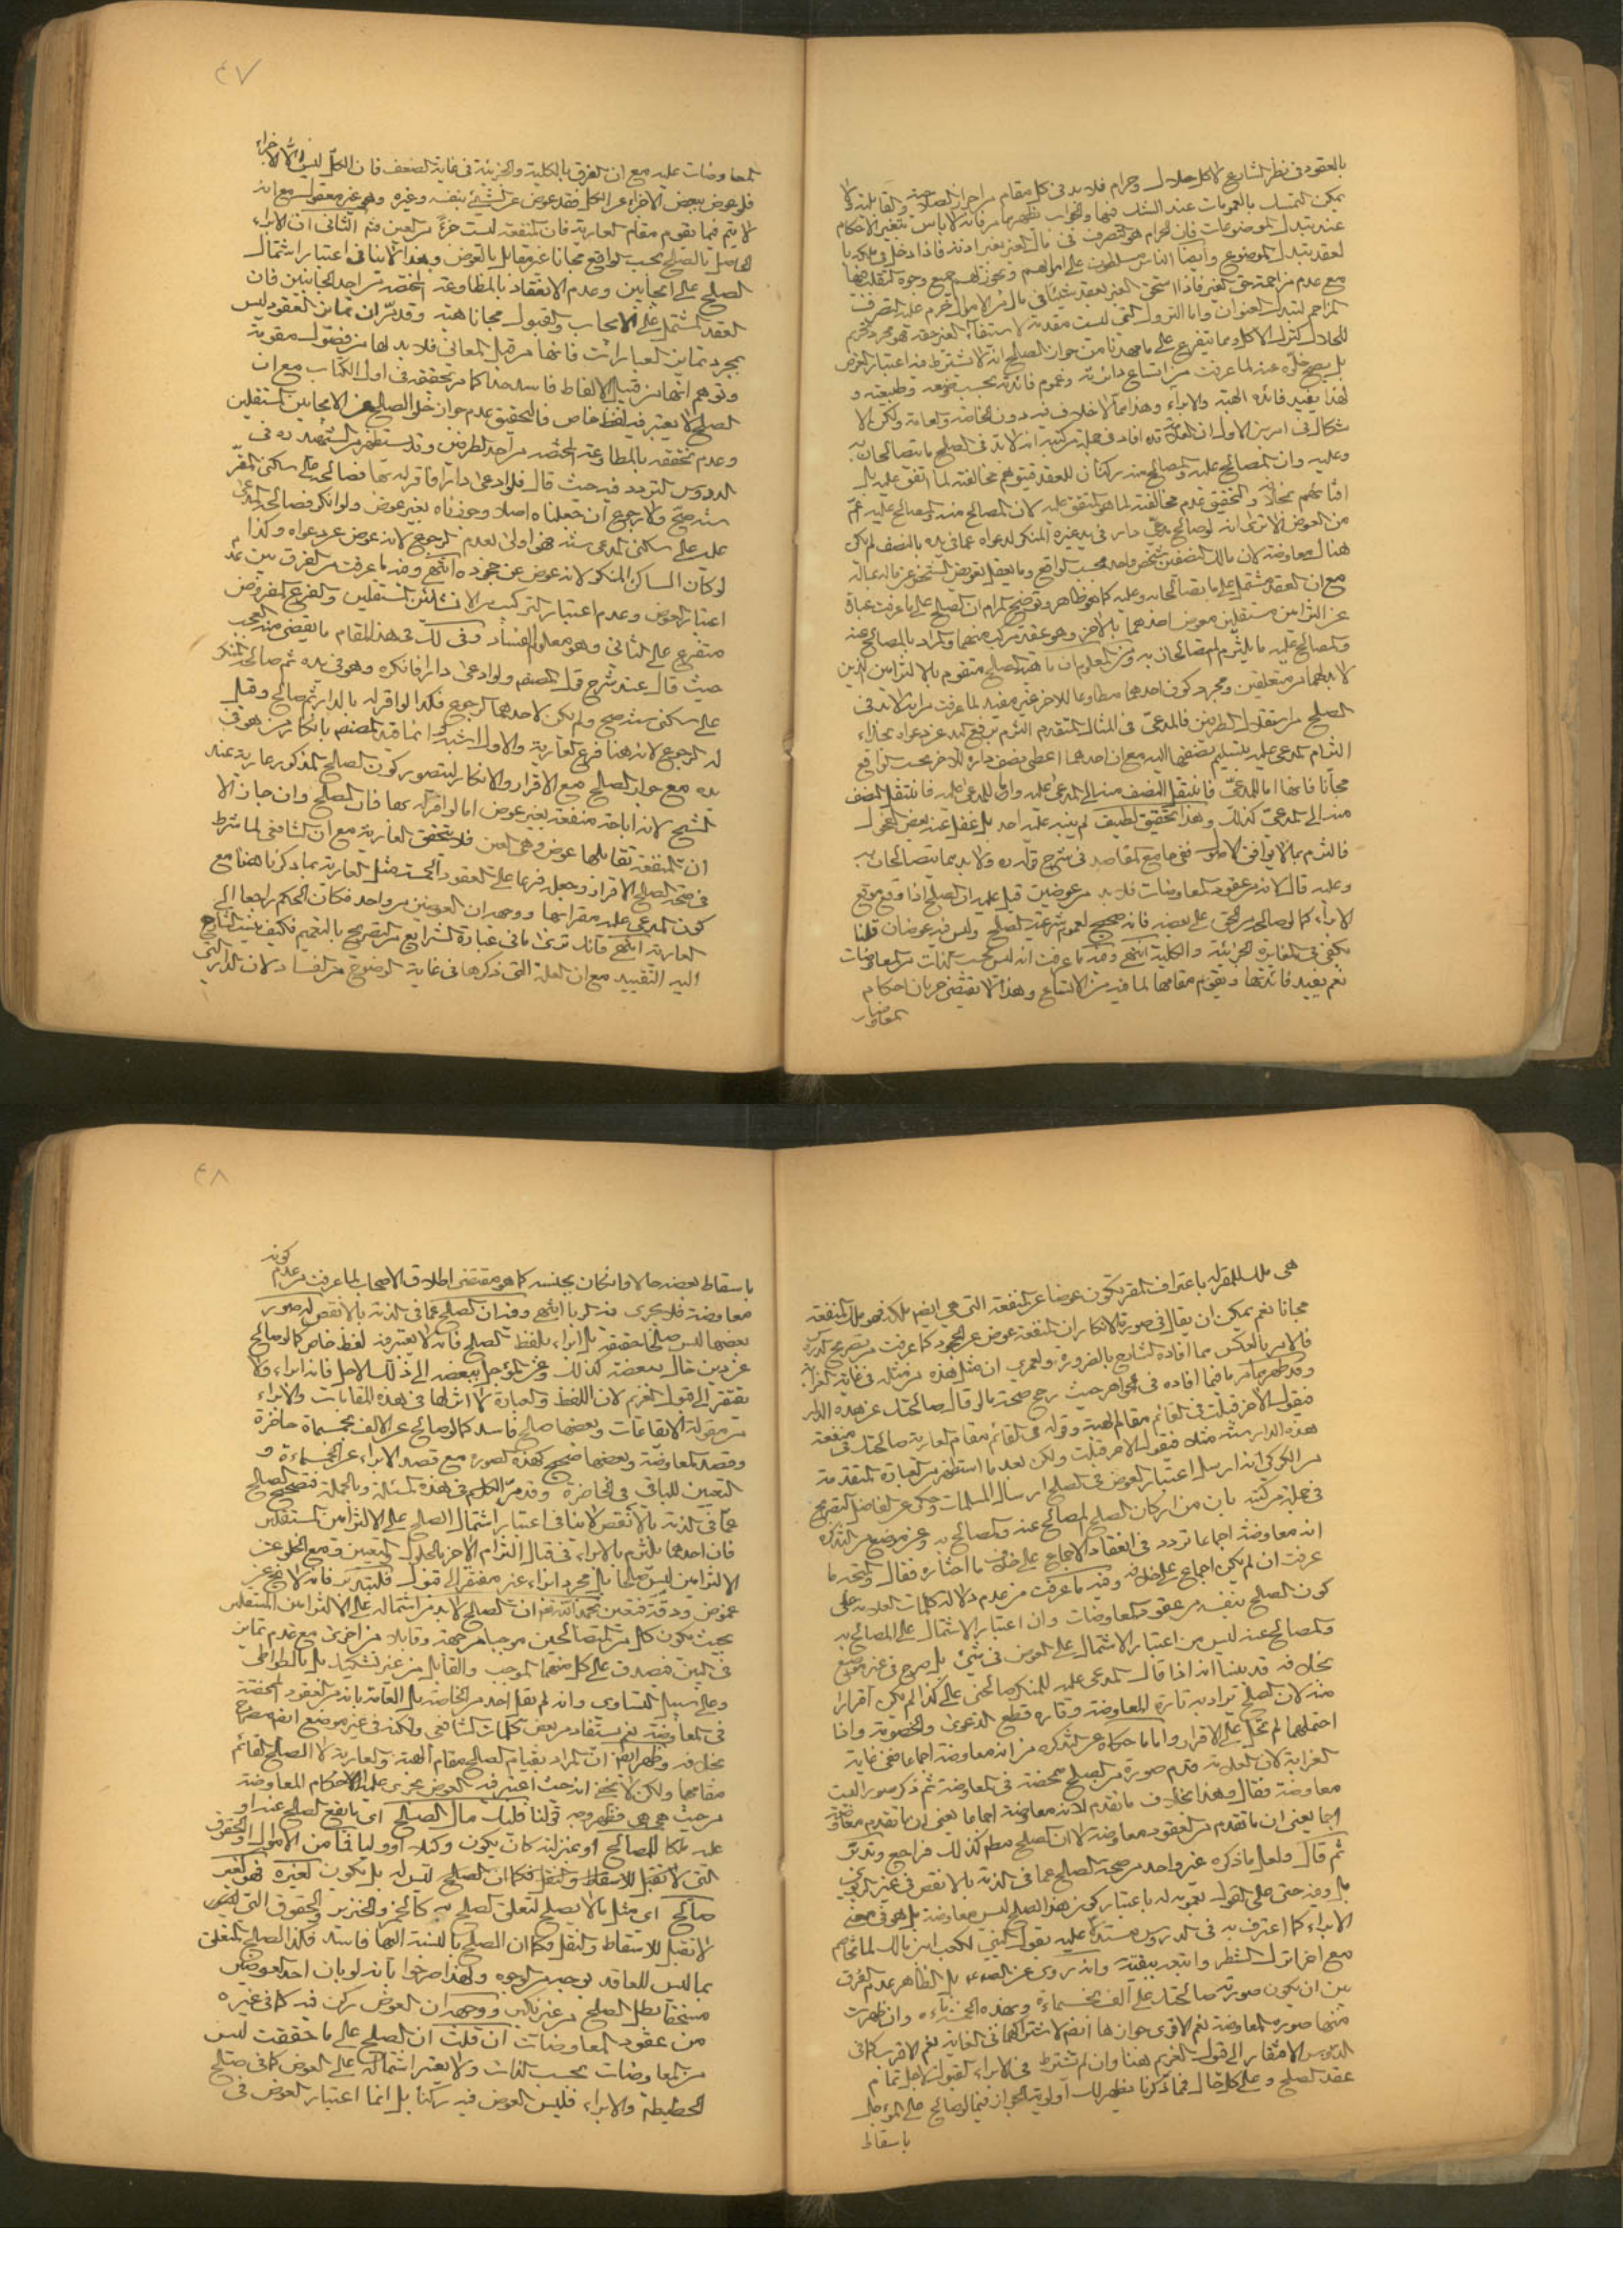 بالعقود في نظر الشارع لا كل حلال وحرام فلا بد في كل مقام من احراز الصلاحية والقابلية ولا
يمكن التمسك بالعمومات عند الشك فيها والجواب يظهر مما مر فانه لا باس بتغير الاحكام
عند تبدل الموضوعات فان الحرام هو التصرف في مال الغير بغير اذنه فاذا دخل في ملكه
لعقد يتبدل الموضوع وايضا الناس مسلطون على اموالهم ويجوز لهم جميع وجوه التقلب فيها
مع عدم مزاحمة حق الغير فاذا استحق الغير بعقد شيئا في مال من الاموال حرم عليه التصرف
للحلال كترك الاكل ومما يتفرع على ما مهدنا من جواز الصلح انه لا يشترط فيه اعتبار العوض
بل يصح خلوه عنه لما عرفت من اتساع دائرته وعموم فائدته بحسب وضعه وطبيعته و
لهذا يفيد فائدة الهبة والابراء وهذا مما لا خلاف فيه دون الخاصة والعامة ولكن الا
شكال في امرين الاول ان العلامة قده افاد في جملة من كتبه انه لا بد في الصلح ما يتصالحان به
وعليه وان المصالح عليه والمصالح عنه ركنان للعقد فيتوهم مخالفته لما اتفق عليه
من العوض الا ترى انه لو صالح مدعي دار في يد غيره المنكر لدعواه عما في يده بالنصف لم يكن
هناك معاوضة لان مالك النصفين شخص واحد بحسب الواقع وما يعقل تعويض الشخص عن ماله بماله
مع ان العقد مشتمل على ما يتصالحان به وعليه كما هو ظاهر وتوضيح المرام ان الصلح على ما عرفت عبارة
عن التزامين مستقلين معوض احدهما بالاخر وهو عقد مركب منهما والمراد بالمصالح عنه
والمصالح عليه ما يلتزم المتصالحان به ومن المعلوم ان ماهية الصلح متقوم بالالتزامين الذين
لا بد لهما من متعلقين ومجرد كون احدهما مطاوعا للاخر غير مفيد لما عرفت من انه لا بد في
الصلح من استقلال الطرفين فالمدعي في المثال المتقدم التزم برفع اليد عن دعواه بحذاء
التزام المدعى عليه بتسليم نصفها اليه مع ان احدهما اعطى نصف داره للاخر بحسب الواقع
مجانا فانها اما للمدعي فانتقل النصف منه الى المدعى عليه واما للمدعى عليه فانتقل النصف
منه الى المدعي كذلك وهذا تحقيق لطيف لم ينبه عليه احد بل غفل عنه بعض الفحول
فالتزم بما لا يوافق الاصول ففي جامع المقاصد في شرح قوله ولا بد مما يتصالحان به
وعليه قال لانه من عقود المعاوضات فلا بد من عوضين قيل عليه ان الصلح اذا وقع موقع
الابراء كما لو صالحه من الحق على بعضه فانه صحيح لعموم شرعية الصلح وليس فيه عوضان قلنا
يكفي في المغايرة الجزئية والكلية انتهى وفيه ما عرفت انه ليس بحسب الذات من المعاوضات
نعم يفيد فائدتها ويقوم مقامها لما فيه من الاتساع وهذا لا يقتضي جريان احكام
المعاوضات
٤٧
المعاوضات عليه مع ان الفرق بالكلية والجزئية في غاية الضعف فان الكل ليس الا الاجزاء
فلو عوض ببعض الاجزاء عن الكل فقد عوض عن الشيء بنفسه وغيره وهو غير معقول مع انه
لا يتم فيما يقوم مقام العارية فان المنفعة ليست جزء من العين فثم الثاني ان الابراء
الحاصل بالصلح بحسب الواقع مجانا غير مقابل بالعوض وهذا لا ينافي اعتبار اشتمال
الصلح على الايجابين وعدم الانعقاد بالمطاوعة المحضة من احد الجانبين فان
العقد المشتمل على الايجاب والقبول مجانا هبة وقد مر ان تمايز العقود ليس
بمجرد تمايز العبارات فانها من قبيل المعاني فلا بد لها من فصول مقومة
وتوهم انها من قبيل الالفاظ فاسد جدا كما مر تحقيقه في اول الكتاب مع ان
الصلح لا يعتبر فيه لفظ خاص فالتحقيق عدم جواز خلو الصلح عن الايجابين المستقلين
وعدم تحققه بالمطاوعة المحضة من احد الطرفين وقد يستظهر من الشهيد ره في
الدروس التردد فيه حيث قال فلو ادعى دارا فاقر له بها فصالحه على سكنى المقر
سنة صح ولا رجوع ان جعلناه اصلا وجوزناه بغير عوض ولو انكر فصالحه المدعى
عليه على سكنى المدعي سنة فهو اولى لعدم الرجوع لانه عوض عن دعواه وكذا
لو كان الساكن المنكر لانه عوض عن جحوده انتهى وفيه ما عرفت من الفرق بين عدم
اعتبار العوض وعدم اعتبار التركيب من الانشائين المستقلين والفرع المفروض
متفرع على الثاني وهو معلوم الفساد وفي لك في هذا المقام ما يقضي منه العجب
حيث قال عند شرح قول المصنف ولو ادعى دارا فانكره وهو في يده ثم صالحه المنكر
على سكنى سنة صح ولم يكن لاحدهما الرجوع وكذا لو اقر له بالدار ثم صالح وقيل
له الرجوع لانه هنا فرع العارية والاول اشبه وانما قيد المصنف بانكار من هو في
يده مع جواز الصلح مع الاقرار والانكار ليتصور كون الصلح المذكور عارية عند
الشيخ لانه اباحة منفعة بغير عوض اما لو اقر له بها فان الصلح وان جاز الا
ان المنفعة تقابلها عوض وهي العين فلا يتحقق العارية مع ان الشافعي لما شرط
في صحة الصلح الاقرار وجعل فرعا على العقود الخمسة مثل العارية بما ذكرنا هنا مع
كون المدعى عليه مقرا بها ووجه ان العوضين من واحد فكان الحكم راجعا الى
العارية انتهى فانك ترى ما في عبارة الشرايع من التصريح بالتعميم فكيف ينسب الشارح
اليه التقييد مع ان العلة التي ذكرها في غاية الوضوح من الفساد لان الدار التي
هي ملك للمقر له باعتراف المقر تكون عوضا عن المنفعة التي هي ايضا ملكه فهو ملك المنفعة
مجانا نعم يمكن ان يقال في صورة الانكار ان المنفعة عوض عن الجحود كما عرفت من تصريح الدروس
فالامر بالعكس مما افاده الشارح بالضرورة ولعمري ان مثل هذه من مثله في غاية الغرابة
وقد ظهر مما مر ما فيما افاده في الجواهر حيث رجح صحة ما لو قال صالحتك عن هذه الدار
فيقول الاخر قبلت في القائم مقام الهبة وقوله في القائم مقام العارية صالحتك في منفعة
هذه الدار سنة مثلا فيقول الاخر قبلت ولكن بعد ما استظهر من العبارة المتقدمة
من الكركي انه ارسل اعتبار العوض في الصلح ارسال المسلمات وحكى عن الفاضل التصريح
في جملة من كتبه بان من اركان الصلح المصالح عنه والمصالح به وعن موضع من التذكرة
انه معاوضة اجماعا تردد في انعقاد الاجماع على خلاف ما اختاره فقال والمتجه ما
عرفت ان لم يكن اجماع على خلافه وفيه ما عرفت من عدم دلالة كلمات العلامة على
كون الصلح بنفسه من عقود المعاوضات وان اعتبار الاشتمال على المصالح به
والمصالح عنه ليس من اعتبار الاشتمال على العوض في شيء بل صرح في غير موضع
بخلافه قد بينا انه اذا قال المدعى عليه للمنكر صالحني على كذا لم يكن اقرارا
منه لان الصلح تراد به تارة المعاوضة وتارة قطع الدعوى والخصومة واذا
احتملهما لم يحمل على الاقرار واما ما حكاه عن التذكرة من انه معاوضة اجماعا ففي غاية
الغرابة لان العلامة قدم صورة من الصلح محضة في المعاوضة ثم ذكر صورا ليست
معاوضة فقال وهذا بخلاف ما تقدم لانه معاوضة اجماعا يعني ان ما تقدم معاوضة
اجماعا يعني ان ما تقدم من العقود معاوضة لا ان الصلح مطلقا كذلك فراجع وتدبر
ثم قال ولعل ما ذكره غير واحد من صحة الصلح عما في الذمة بالانقص في غير الربوي
بل وفيه حتى على القول بعمومه له باعتبار كون هذا الصلح ليس معاوضة بل هو في معنى
الابراء كما اعترف به في الدروس مستدلا عليه بقول النبي لكعب بن مالك لما تخاصم
مع اخر اترك الشطر واتبعه ببقيته وانه روى عن الصادق بل الظاهر عدم الفرق
بين ان يكون صورته صالحتك على الف بخمسمائة وبهذه الخمسمائة وان ظهرت
منها صورة المعاوضة نعم الاقوى جوازها ايضا لاشتراكهما في الغاية نعم الاقرب كما في
الدروس الافتقار الى قبول الغريم هنا وان لم نشترط في الابراء القبول لاجل تمام
عقد الصلح وعلى كل حال فما ذكرنا يظهر لك اولوية الجواز فيما لو صالح على المؤجل
باسقاط
٤٨
باسقاط بعضه حالا وان كان بجنسه كما هو مقتضى اطلاق الاصحاب لما عرفت من عدم كونه
معاوضة فلا يجري فيه الربا انتهى وفيه ان الصلح عما في الذمة بالانقص له صور
بعضها ليس صلحا حقيقة بل ابراء بلفظ الصلح فانه لا يعتبر فيه لفظ خاص كما لو صالح
عن دين حال ببعضه كذلك وعن المؤجل ببعضه الى ذلك الاجل فانه ابراء ولا
يفتقر الى قبول الغريم لان اللفظ والعبارة لا اثر لها في هذه المقامات والابراء
من مقولة الايقاعات وبعضها صلح فاسد كما لو صالح عن الالف بخمسمائة حاضرة
وقصد المعاوضة وبعضها صحيح كهذه الصورة مع قصد الابراء عن الخمسمائة و
التعيين للباقي في الحاضرة وقد مر الكلام في هذه المسئلة وبالجملة فتصحيح الصلح
عما في الذمة بالانقص لا ينافي اعتبار اشتمال الصلح على الالتزامين المستقلين
فان احدهما يلتزم بالابراء في قبال التزام الاخر بالحلول والتعيين ومع الخلو عن
الالتزامين ليس صلحا بل مجرد ابراء غير مفتقر الى قبول فليتدبر فانه لا يخ عن
غموض ودقة فتعين بحمد الله تعالى ان الصلح لا بد من اشتماله على الالتزامين المستقلين
بحيث يكون كل من المتصالحين موجبا من جهة وقابلا من اخرى مع عدم تمايز
في البين فيصدق على كل منهما الموجب والقابل من غير تشكيك بل بالتواطي
وعلى سبيل التساوي وانه لم يقل احد من الخاصة بل العامة بانه من العقود المحضة
في المعاوضة نعم يستفاد من بعض كلمات الشافعي ولكنه في غير موضع ايضا صرح
بخلافه وظهر ايضا ان المراد بقيام الصلح مقام الهبة والعارية لا الصلح القائم
مقامها ولكن لا يخفى انه حيث اعتبر فيه العوض يجري عليه الاحكام المعاوضة
من حيث هي هي فظهر وجه قولنا فليك مال الصلح اي ما يقع الصلح عنه او
عليه ملكا للمصالح او بمنزلته كان يكون وكيلا او وليا فما من الاموال والحقوق
التي لا تقبل للاسقاط والنقل فكما ان الصلح ليس له بل يكون لغيره فهو لغير
صالح اي مثل ما لا يصلح لتعلق الصلح به كالخمر والخنزير والحقوق التي ليس
لا تقبل للاسقاط والنقل فكما ان الصلح بالنسبة اليها فاسد فكذا الصلح المتعلق
بما ليس للعاقد بوجه من الوجوه ولهذا صرحوا بانه لو بان احد العوضين
مستحقا بطل الصلح من غير نكير ووجهه ان العوض ركن فيه كما في غيره
من عقود المعاوضات ان قلت ان الصلح على ما حققت ليس
من المعاوضات بحسب الذات ولا يعتبر اشتماله على العوض كما في صلح
الحطيطة والابراء فليس العوض فيه ركنا بل انما اعتبار العوض في